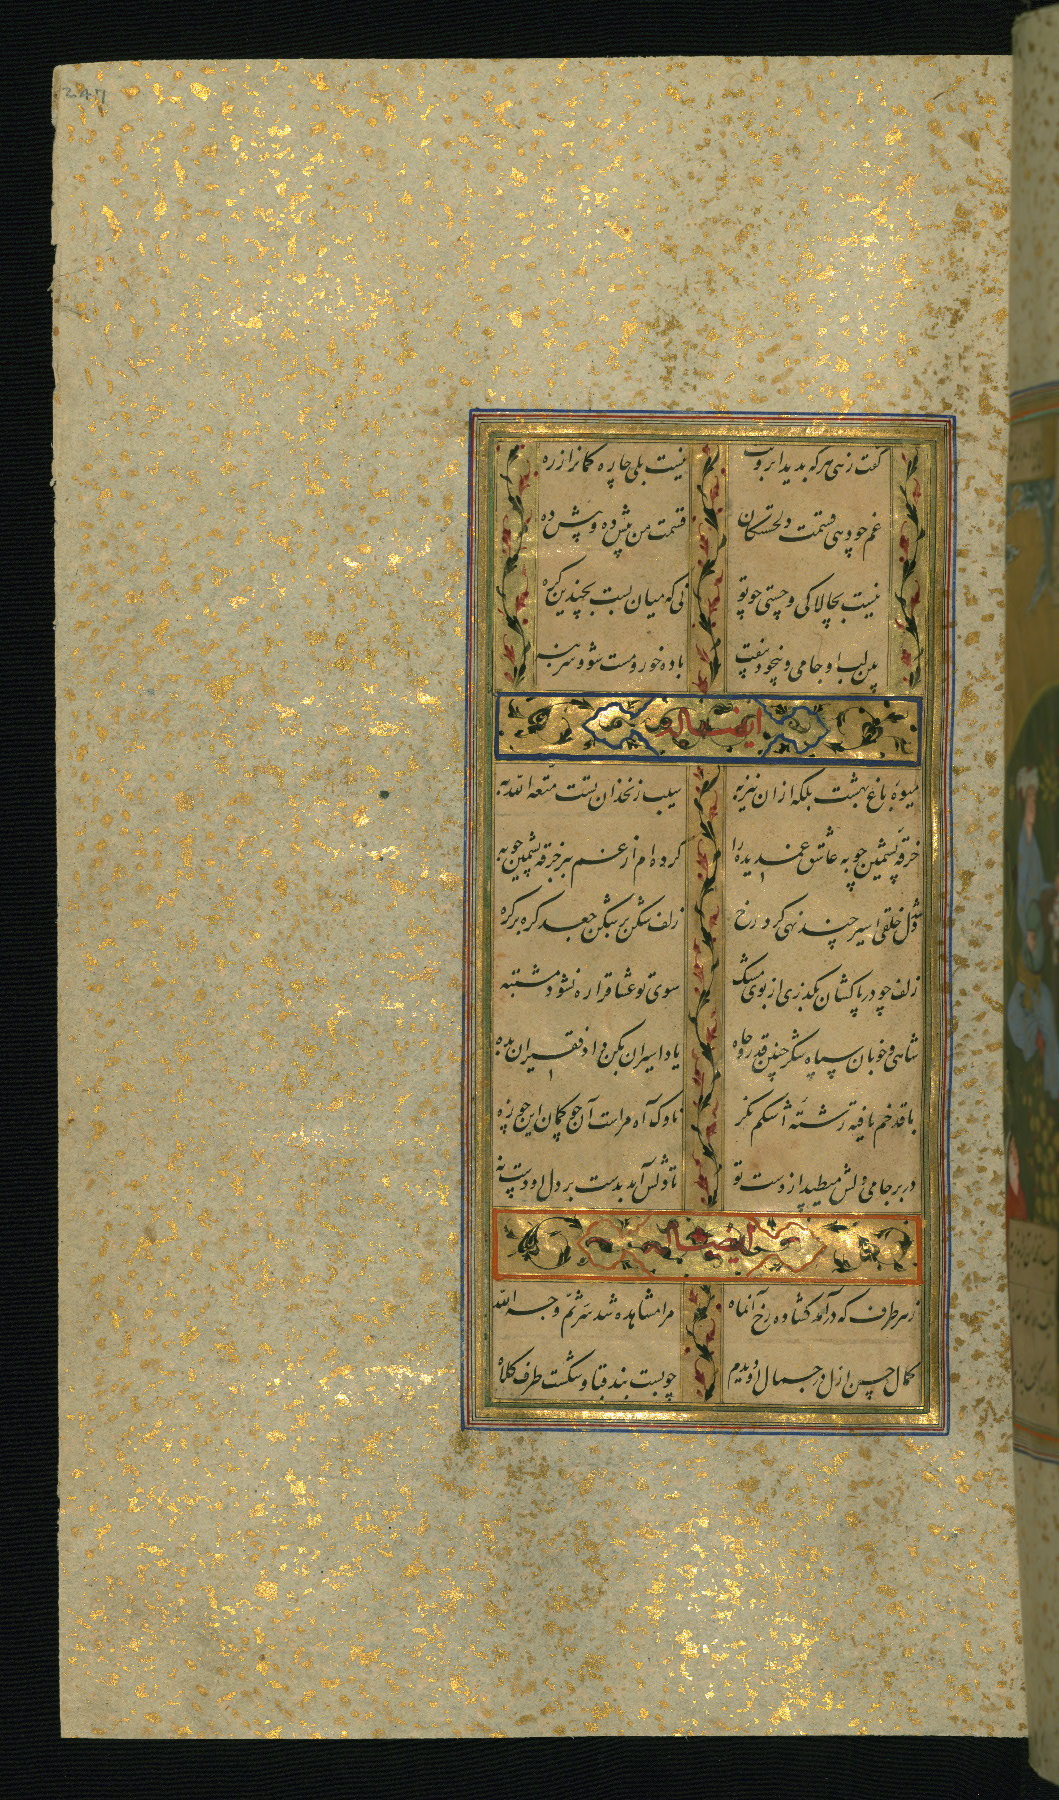 247
گفت ز زهی هر که بدید ابروت
نیست بلی چاره کمانرا ز زه
غم چو دهی قسمت دلخستگان
قسمت من بیش ده و پیش ده
نیست بچالاکی و چستی چو تو
نی که میان بست بچندین گره
بین لب او جامی و بیخود بیفت
باده خور و مست شو و سر بنه
ایضا له
میوه باغ بهشت بلکه از ان نیز به
سیب زنخدان تست متعه الله به
خرقه پشمین چو به عاشق غمدیده را
کرده ام از غم ببر خرقه پشمین چو به
شد دل خلقی اسیر چند نهی گرد رخ
زلف شکن بر شکن جعد گره بر گره
زلف چو در پا کشان بگذری از بوی مشک
سوی تو عشاق را ره نشود مشتبه
شاهی و خوبان سپاه شکر چنین قدر و جاه
یاد اسیران بکن داد فقیران بده
با قد خم یافته رشته اشکم نگر
ناوک آه مراست آن چو کمان این چو زه
در بر جامی دلش میطپد از دست تو
تا دلش آید بدست بر دل او دست نه
ایضا له
ز هر طرف که درآمد گشاده رخ آنماه
مرا مشاهده شد سر ثم وجه الله
کمال حسن ازل در جمال او دیدم
چو بست بند قبا و شکست طرف کلاه